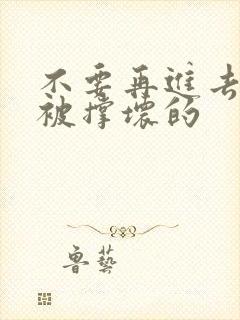 不要再进去
被撑坏的
鲁艺